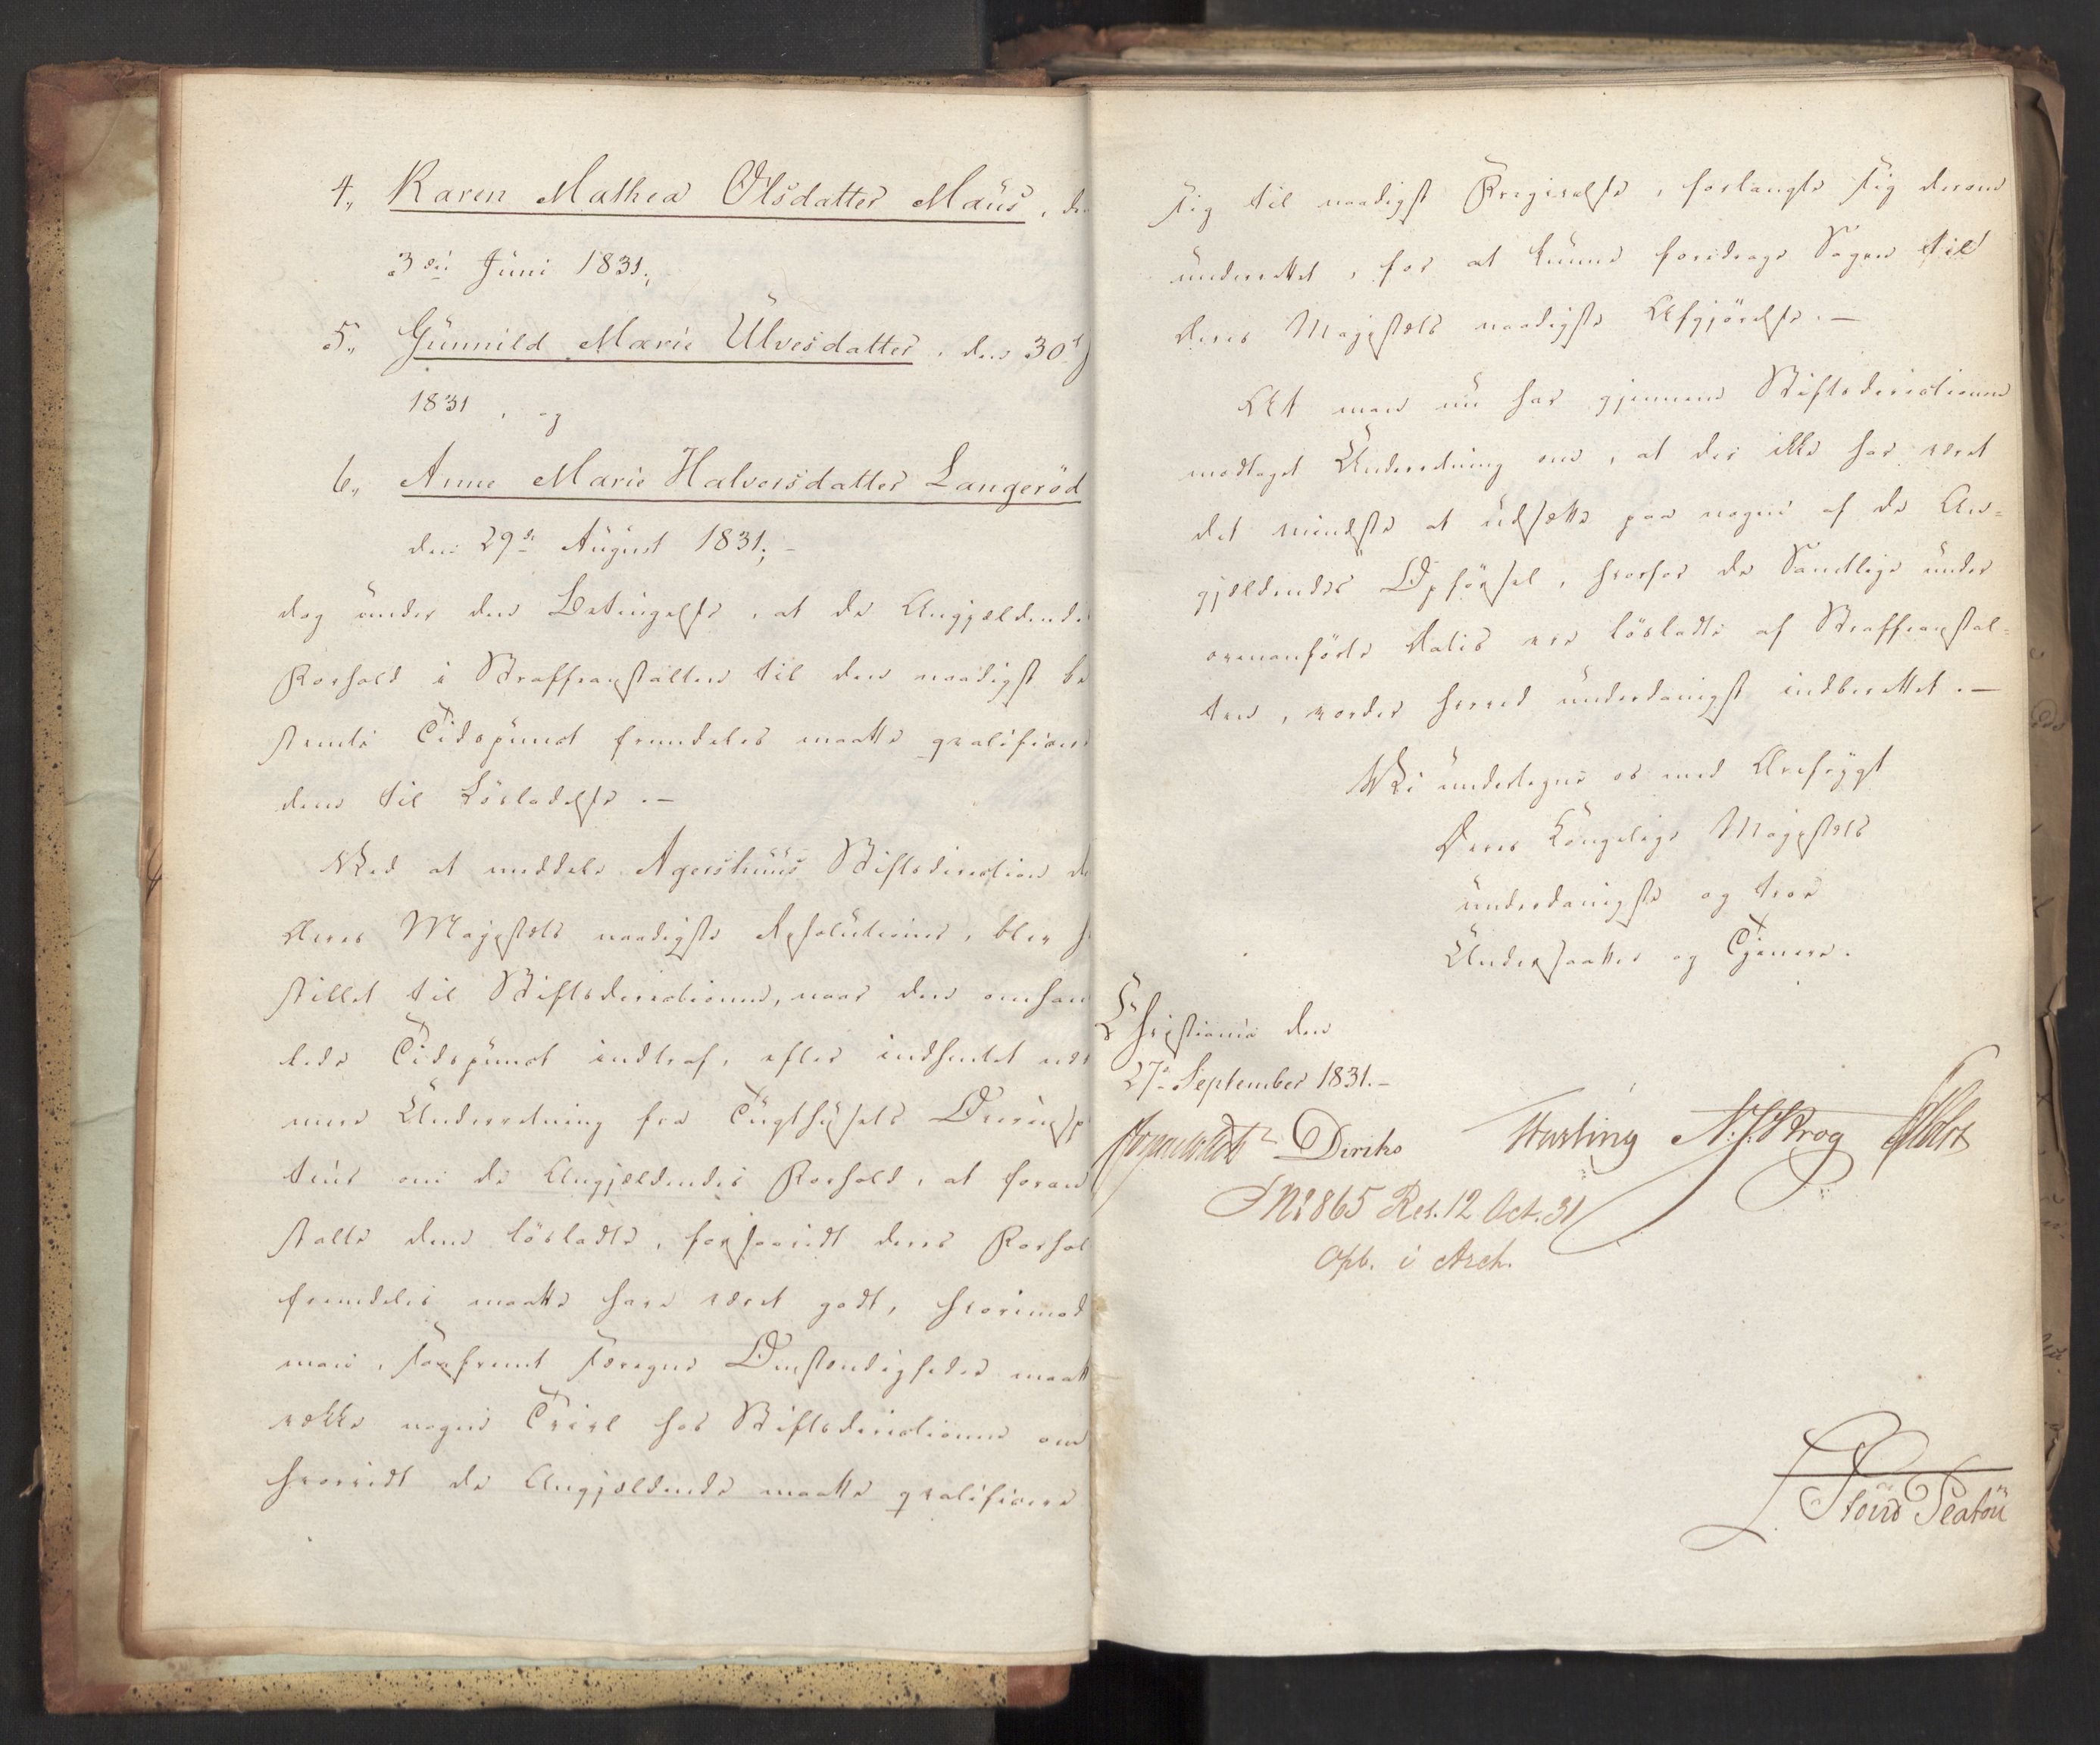 4., Karen Mathea Olsdatter Maus, den
3die Juni 1831.,
5., Gunnild Marie Ulvesdatter, den 30te J
1831, og
6., Anne Marie Halvorsdatter Langeröd
den 29de August 1831; -
dog under den Betingelse, at de Angjældendes
Forhold i Straffeanstalten til den naadigst be
stemte Tidspunct fremdeles maatte qvalificere
dem til Lösladelse. —
Ved at meddele Agershuus Stiftsdirection de
Deres Majestæts naadigste Resolutioner, blev
stillet til Stiftsdirectionen, naar den omhan
lede Tidspunct indtraf, efter indhentet nær
mere Underretning fra Tugthusets Overinsp
teur om de Angjældendes Forhold, at foran
stalte dem lösladte, forsaavidt deres Forhol
fremdeles maatte have været godt, hvorimod
man, saafremt særegne Omstændigheder maatt
vække nogen Tvivl hos Stiftsdirectionen om
hvorvidt de Angjældende maatte qvalificere
sig til naadigst Frigivelse, forlangte sig derom
underrettet, for at kunne foredrage Sagen til
Deres Majestæts naadigste Afgjörelse. —
At man nu har gjennem Stiftsdirectionen
modtaget Underretning om, at der ikke har været
det mindste at udsætte paa nogen af de An=
gjældendes Opförsel, hvorfor de Samtlige under
ovenanförte Datis ere lösladte af Straffeanstal=
ten, vorder herved underdanigst indberettet. —
Vi undertegne os med Ærefrygt
Deres Kongelige Majestæts
underdanigste og troe
Undersaatter og Tjenere.
Christiania den
27de September 1831. -
Diriks N. J. Krog
No 865 Res. 12 Oct. 31
Opb. i Arch.